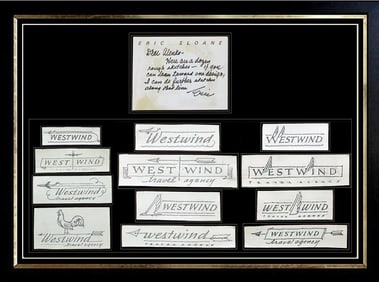 ERIC SLOANE
Dear Alonzo-
Here are a dozen
rough sketches - if you
can lean toward one design,
I can do further sketches
along that line
Eric
WESTWIND
WEST WIND
travel agency
Westwind
travel agency
Westwind
travel agency
Westwind
WEST WIND
travel agency
WESTWIND
TRAVEL AGENCY
westwind
TRAVEL AGENCY
WESTWIND
WEST WIND
TRAVEL AGENCY
WESTWIND
TRAVEL AGENCY
WESTWIND
travel agency